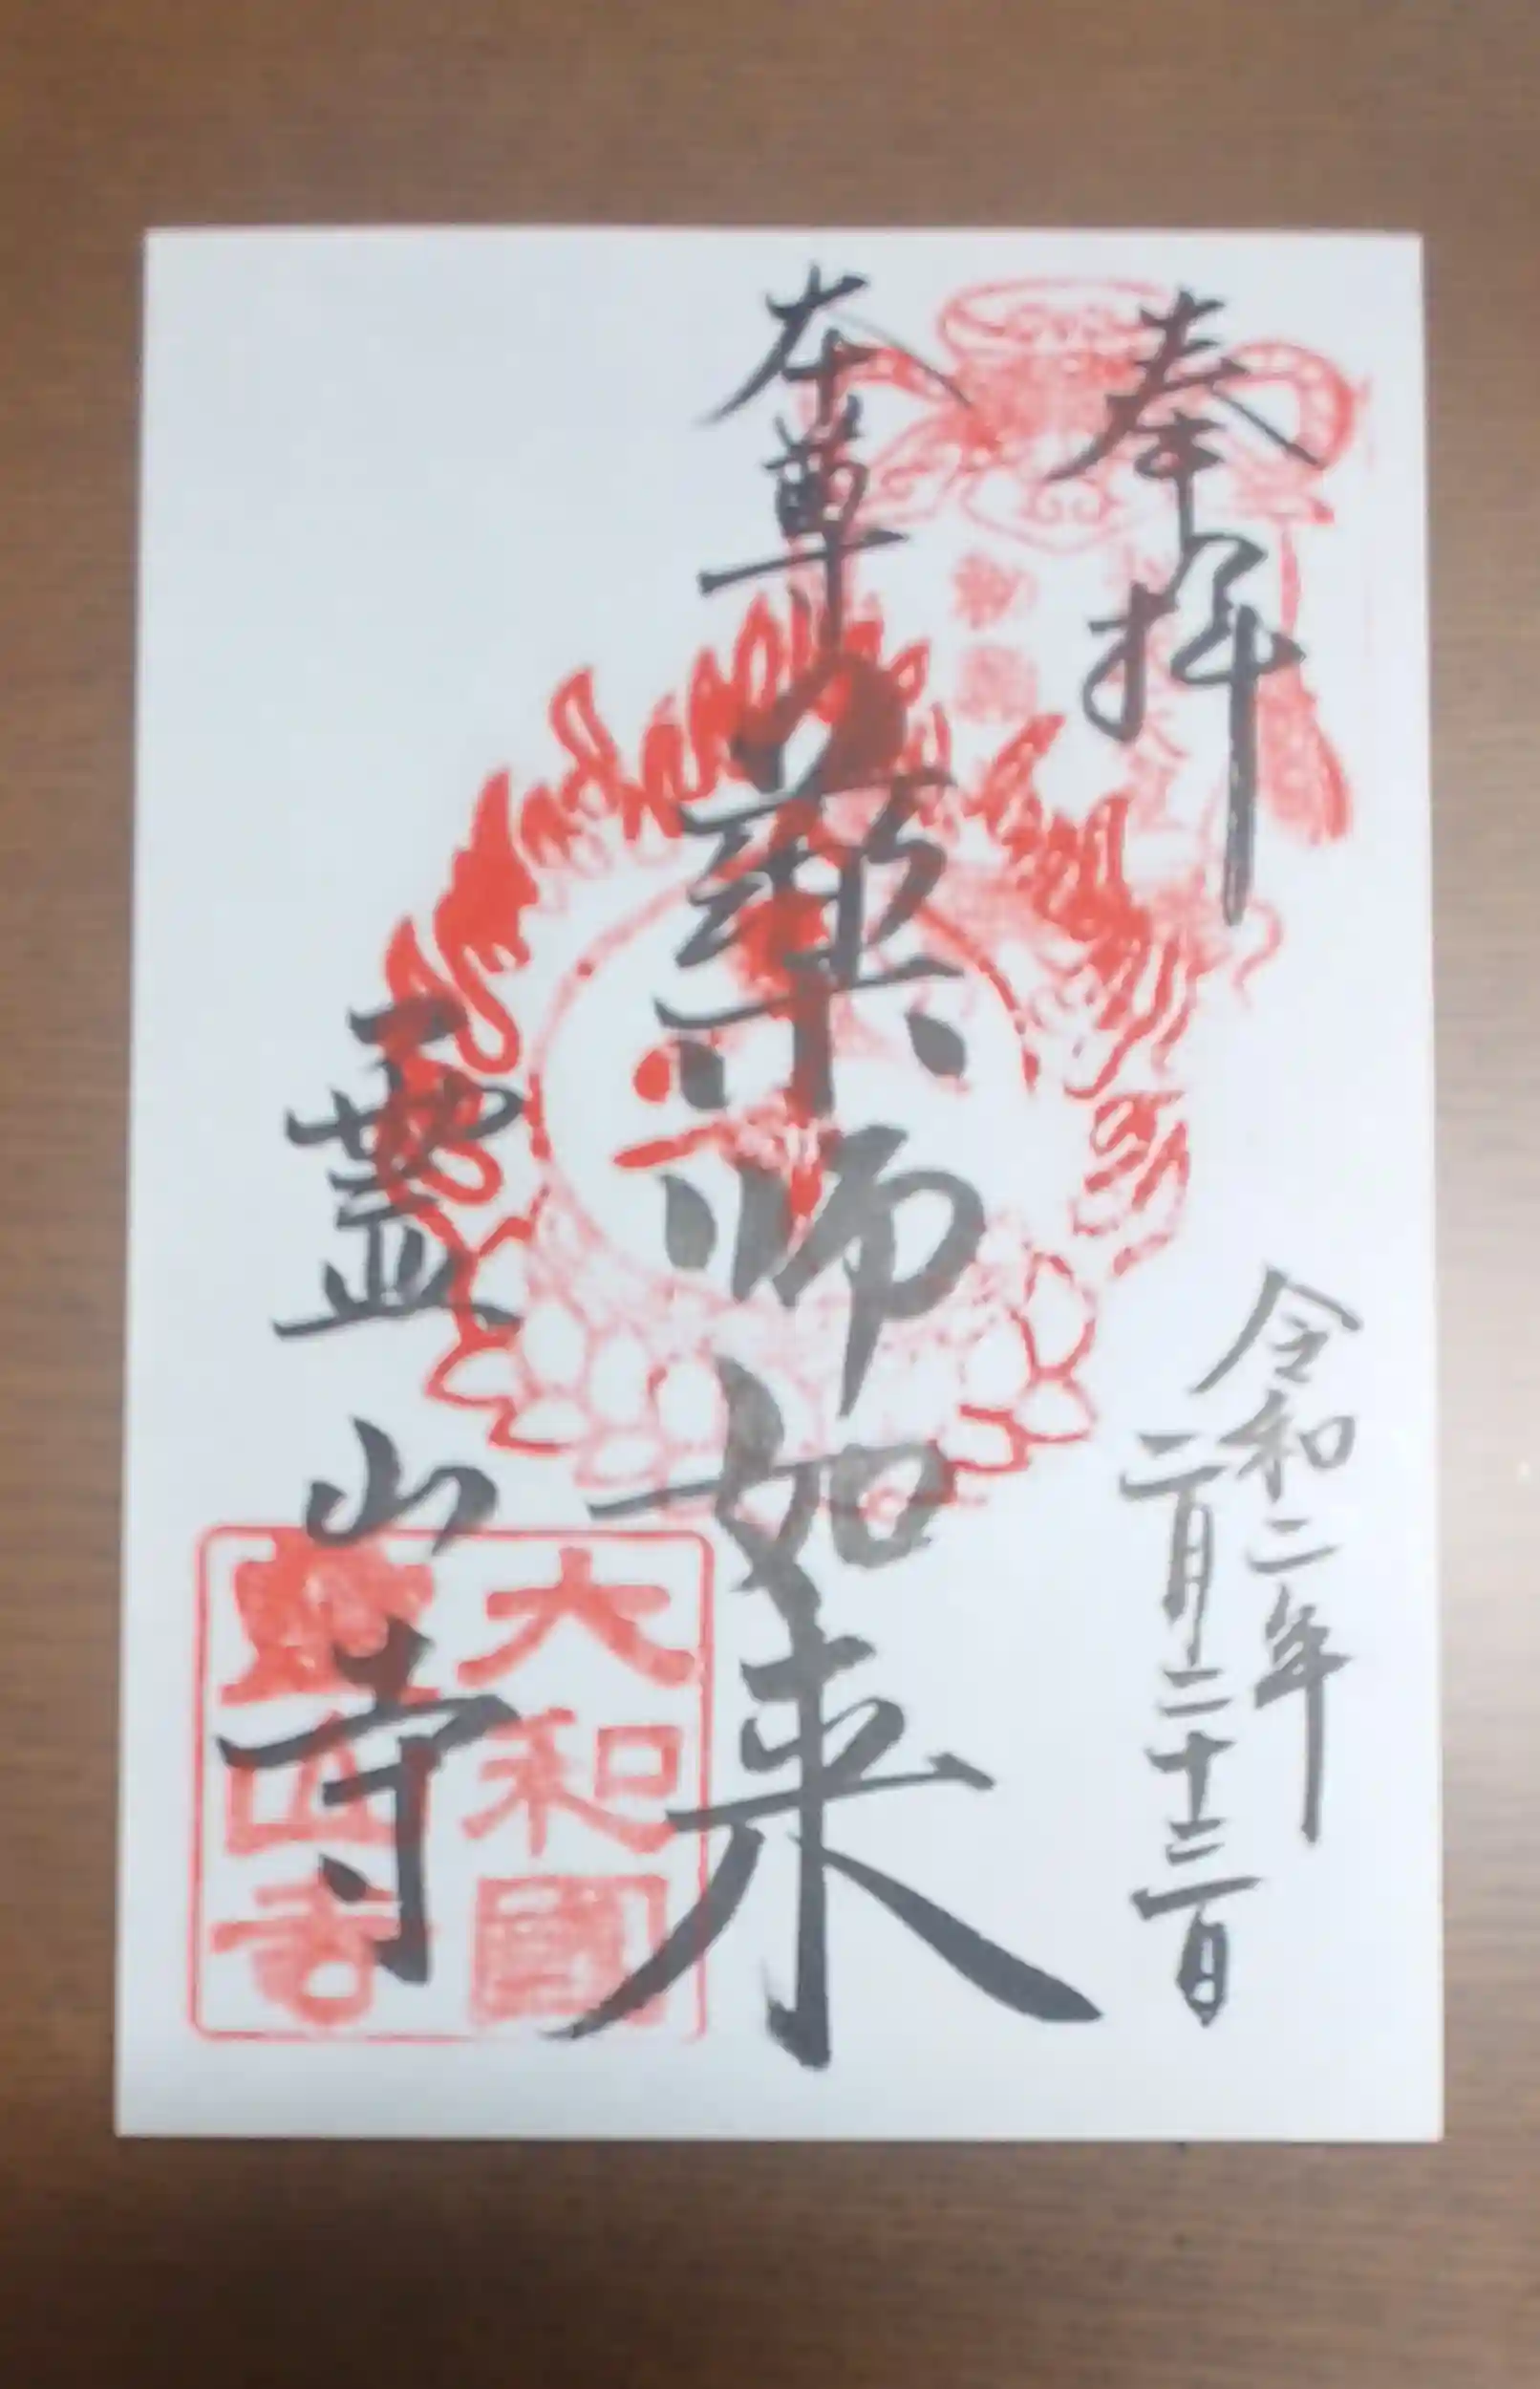 奉拝
令和二年
二月二十三日
本尊
薬師如来
霊山寺
大和國
霊山寺